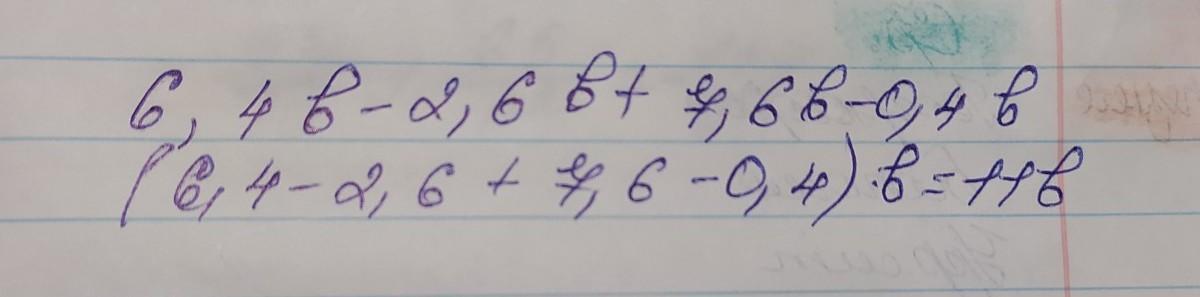 6,4b-2,6b+7,6b-0,4b
(6,4-2,6+7,6-0,4)·b=11b